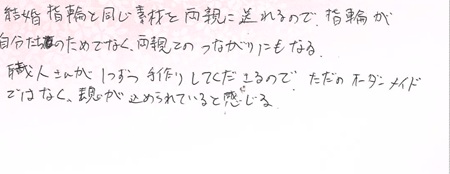 結婚指輪と同じ素材を両親に送れるので、指輪が
自分たちのためでなく、両親とのつながりにもなる。
職人さんが1つずつ手作りしてくださるので、ただのオーダーメイド
ではなく、想いが込められていると感じる